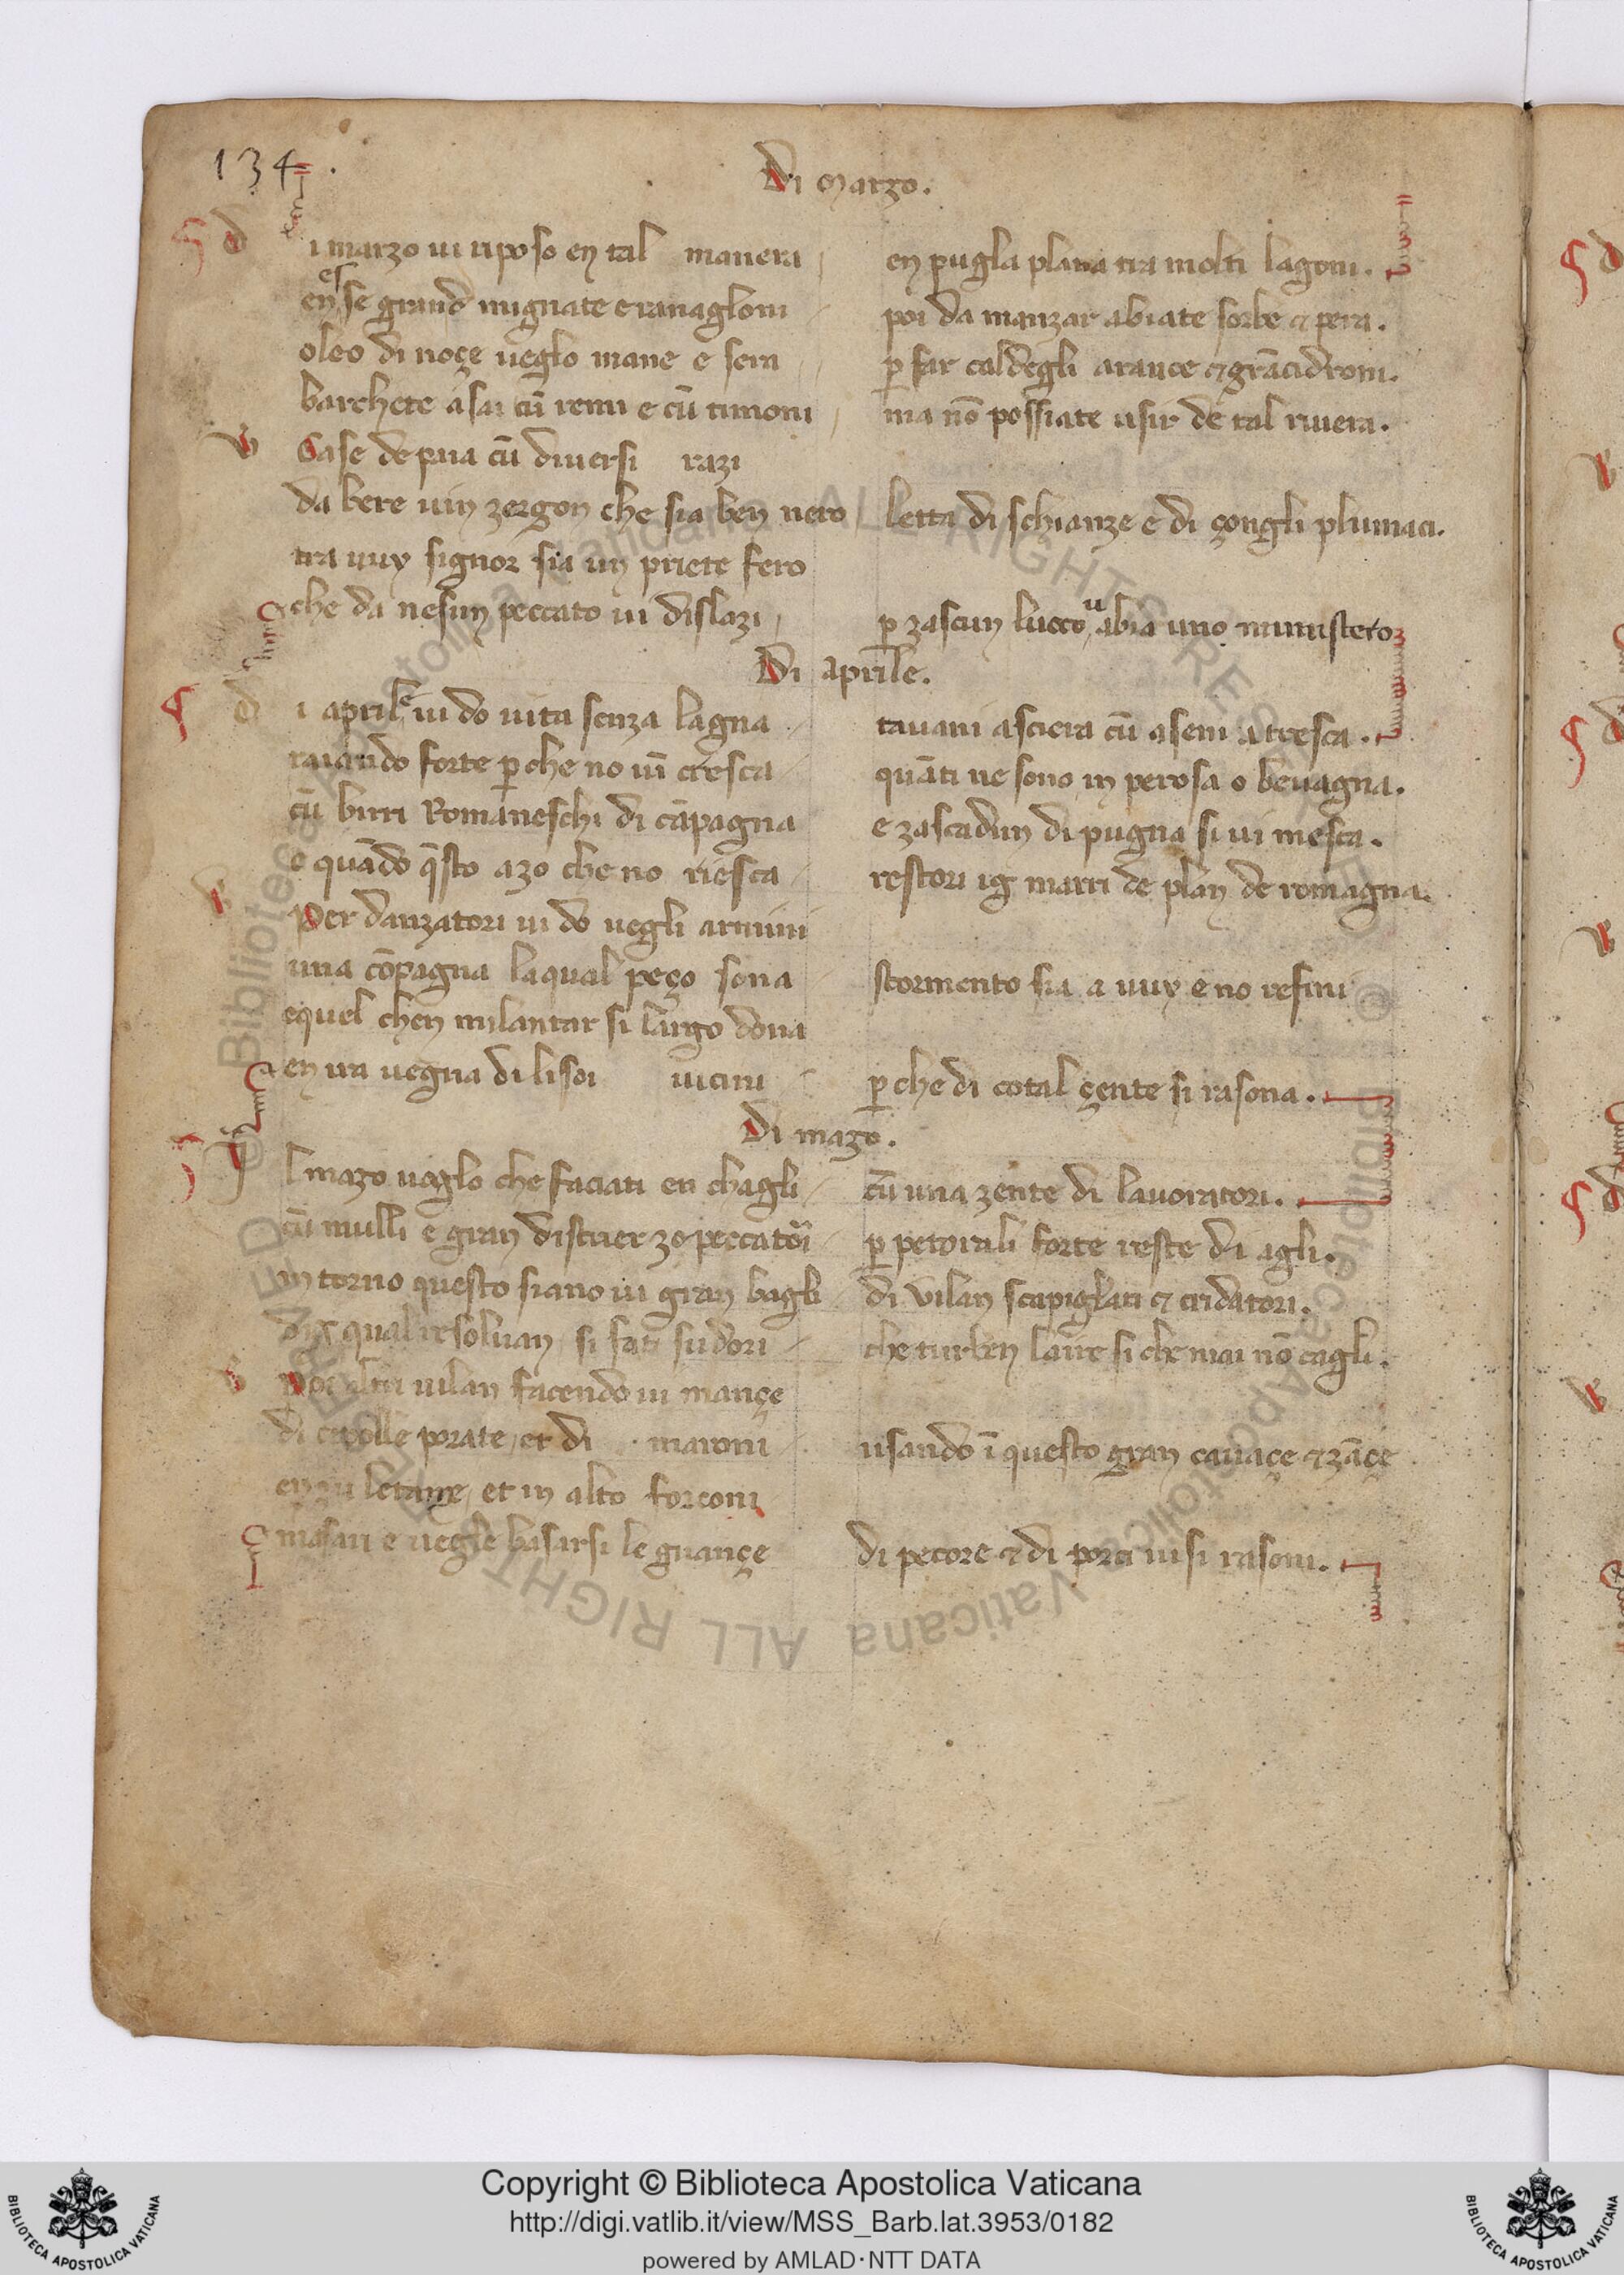 134.
Di marzo.
di marzo vi riposo en tal manera en pugla plana tra molti lagoni.
en esse grand mignate e ranagloni poi da manzar abiate sorbe & pera.
oleo di noçe veglo mane e sera p̄ far caldegli arance & grācidroni.
barchete asai cū remi e cū timoni ma nō possiate usir de tal rivera.
Case de pria cū diversi razi
da bere vin zergon che sia ben nero letta di schianze e di çongli plumaci.
tra vuy signor sia un priete fero
che da nesun peccato vi dislazi p̄ zascun lucco abia uno munistero
Di aprile.
di aprile vi do vita senza lagna tavani a sciera cū aseni a tresca.
raiando forte p̄ che no vī cresca quāti ne sono in perosa o bevagna.
cū birri Romaneschi di cāpagna e zascadun di pugna si vi mesca.
e quādo q̄sto azo che no riesca restori ig marri de plan de romagna.
Per danzatori vi do vegli armini
una cōpagna la qual peço sona stormento sia a vuy e no refini
e quel chen millantar si largo dona
en ira vegna di li soi vicini p̄ che di cotal çente si rasona.
Di mazo.
Il mazo voglo che faciati en chagli cū una zente di lavoratori.
cū mulli e gran distrier zopeccatori p̄ petorali forte reste di agli.
in torno questo siano vi gran bagli di vilan scapiglati & cridatori.
dix qual resolvan si fati sudori che turben laire si che mai nō cagli.
Poi altri vilan facendo vi mançe
di cepolle porate et di maroni usando ī questo gran cavaçe & zāçe
en giu letame et in alto forconi
masari e vegle basarsi le guançe di pecore & di porci vi si rasoni.
Copyright © Biblioteca Apostolica Vaticana
http://digi.vatlib.it/view/MSS_Barb.lat.3953/0182
powered by AMLAD·NTT DATA